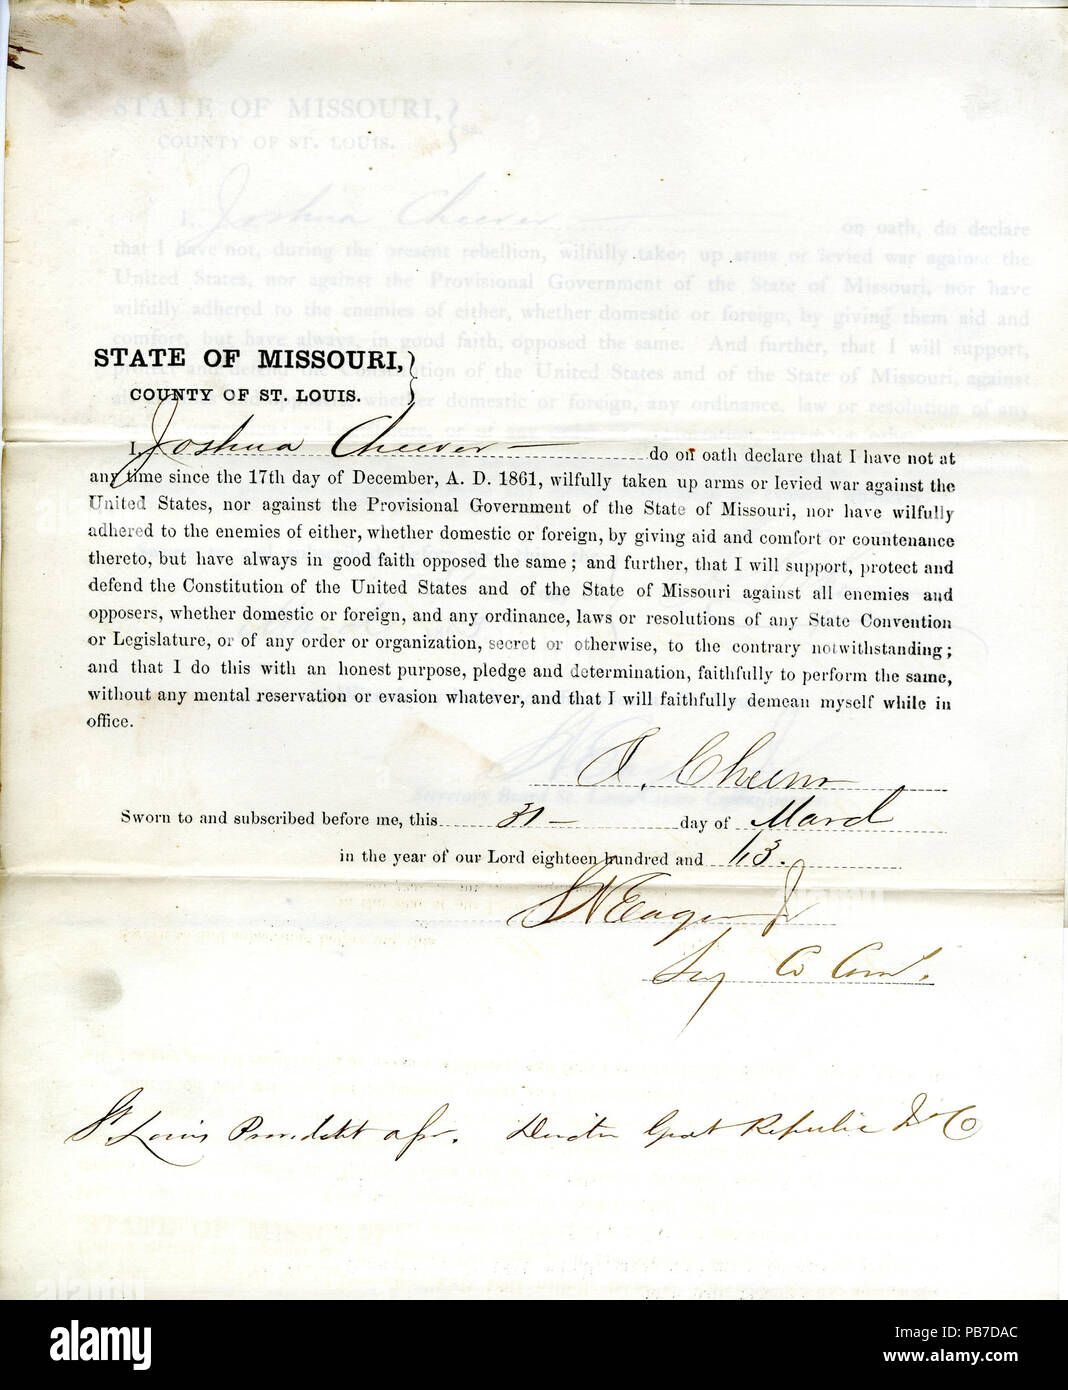 STATE OF MISSOURI,
COUNTY OF ST. LOUIS. ss.
I, Joshua Cheever on oath, do declare
that I have not, during the present rebellion, wilfully taken up arms or levied war against the
United States, nor against the Provisional Government of the State of Missouri, nor have
wilfully adhered to the enemies of either, whether domestic or foreign, by giving them aid and
comfort, but have always, in good faith, opposed the same. And further, that I will support,
protect and defend the Constitution of the United States and of the State of Missouri, against
whether domestic or foreign, any ordinance, law or resolution of any
STATE OF MISSOURI, }
COUNTY OF ST. LOUIS.
I, Joshua Cheever do on oath declare that I have not at
any time since the 17th day of December, A. D. 1861, wilfully taken up arms or levied war against the
United States, nor against the Provisional Government of the State of Missouri, nor have wilfully
adhered to the enemies of either, whether domestic or foreign, by giving aid and comfort or countenance
thereto, but have always in good faith opposed the same; and further, that I will support, protect and
defend the Constitution of the United States and of the State of Missouri against all enemies and
opposers, whether domestic or foreign, and any ordinance, laws or resolutions of any State Convention
or Legislature, or of any order or organization, secret or otherwise, to the contrary notwithstanding;
and that I do this with an honest purpose, pledge and determination, faithfully to perform the same,
without any mental reservation or evasion whatever, and that I will faithfully demean myself while in
office.
J. Cheever
Sworn to and subscribed before me, this 31 day of March
in the year of our Lord eighteen hundred and 63.
S N Eager Jr
Secy Co Com.
St Louis Director Great Republic Is Co
alamy
Image ID: PB7DAC
www.alamy.com